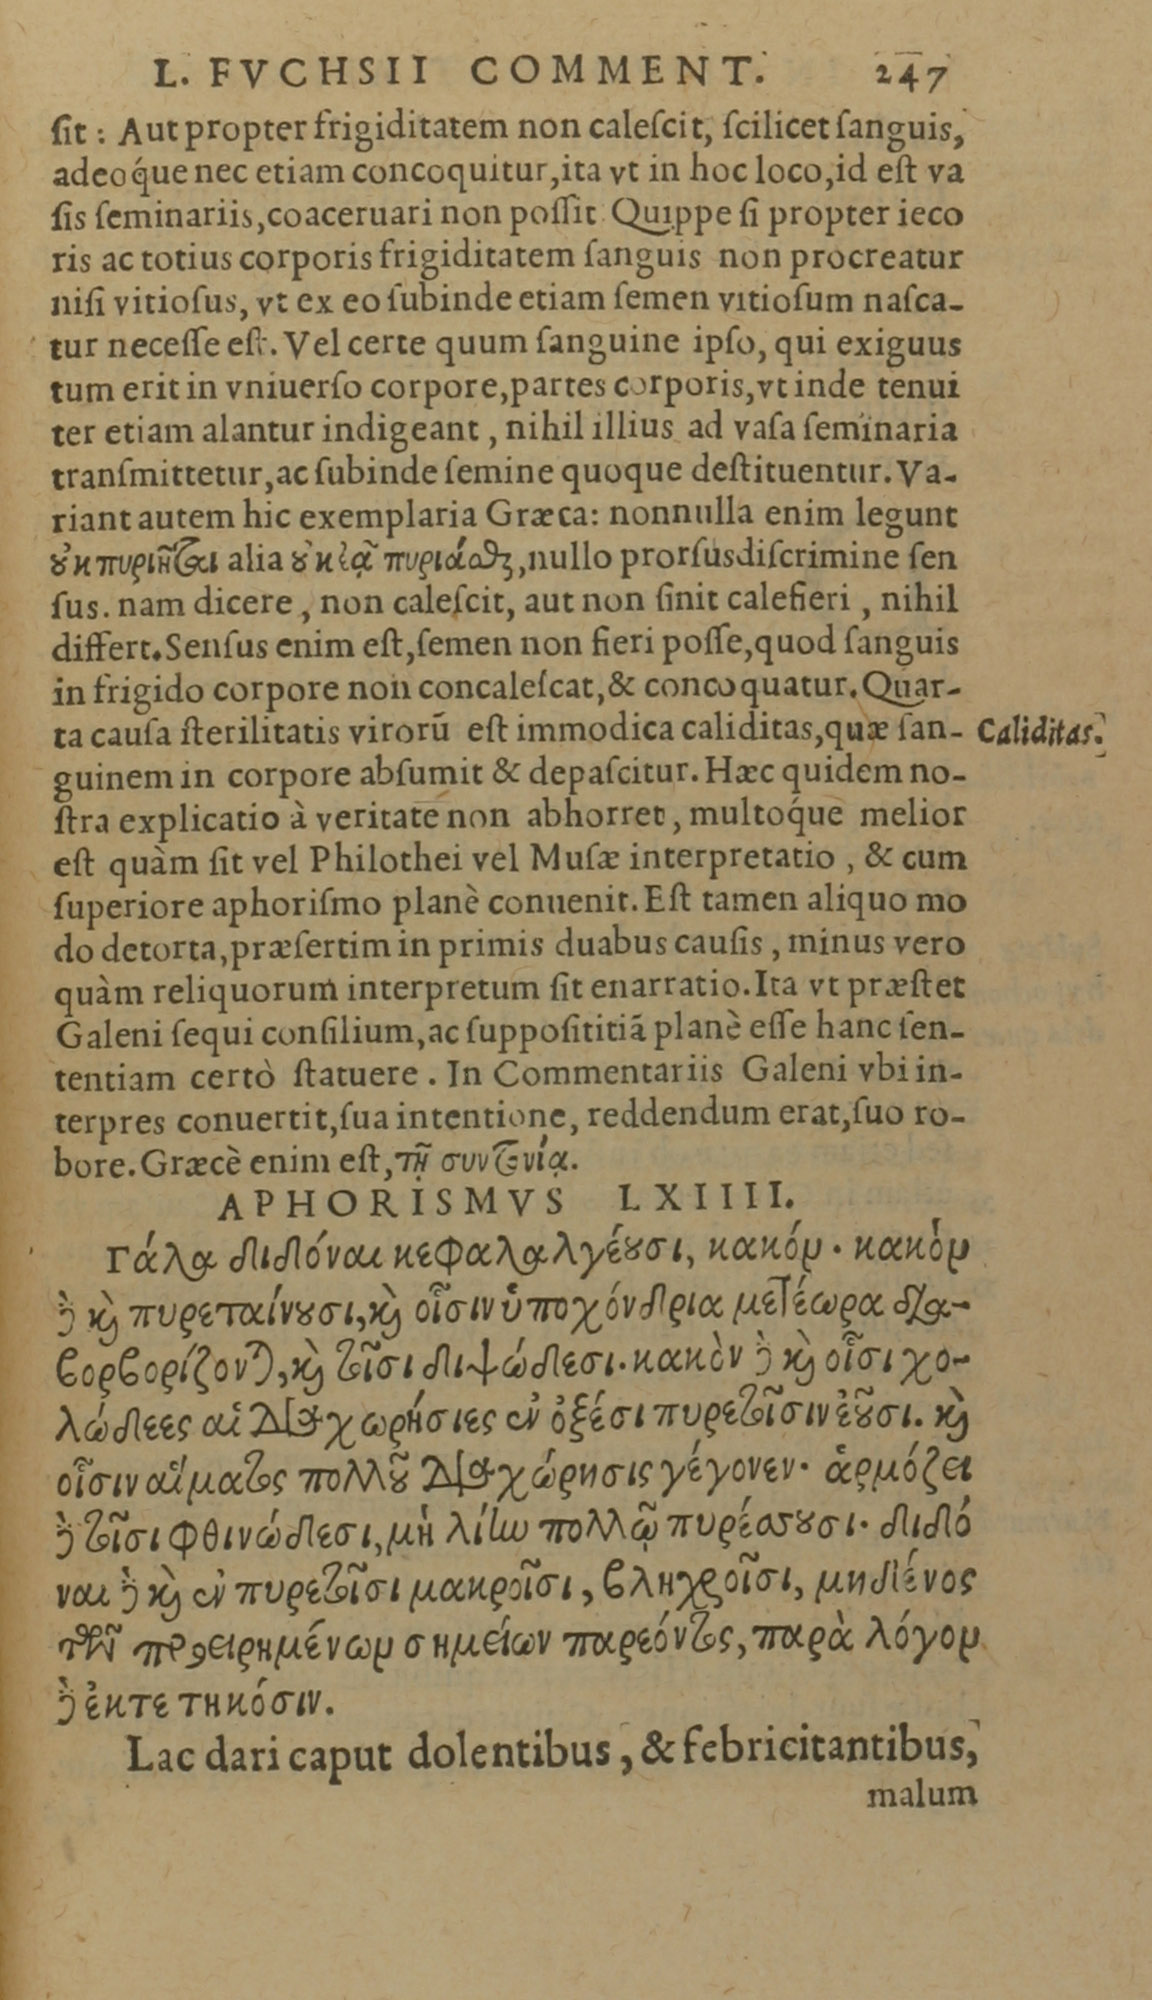 L. FVCHSII COMMENT. 247
ſit: Aut propter frigiditatem non caleſcit, ſcilicet ſanguis,
adeoq́ue nec etiam concoquitur, ita vt in hoc loco, id eſt va
ſis ſeminariis, coaceruari non poſſit Quippe ſi propter ieco
ris ac totius corporis frigiditatem ſanguis non procreatur
niſi vitioſus, vt ex eo ſubinde etiam ſemen vitioſum naſca-
tur neceſſe eſt. Vel certe quum ſanguine ipſo, qui exiguus
tum erit in vniuerſo corpore, partes corporis, vt inde tenui
ter etiam alantur indigeant, nihil illius ad vaſa ſeminaria
tranſmittetur, ac ſubinde ſemine quoque deſtituentur. Va-
riant autem hic exemplaria Græca: nonnulla enim legunt
ȣ̓κ πυριῆται alia ȣ̓κ ἐᾷ πυριάσθαι, nullo prorſus diſcrimine ſen
ſus. nam dicere, non caleſcit, aut non ſinit calefieri, nihil
differt. Senſus enim eſt, ſemen non fieri poſſe, quod ſanguis
in frigido corpore non concaleſcat, & concoquatur. Quar-
ta cauſa ſterilitatis virorũ eſt immodica caliditas, quæ ſan-
Caliditas.
guinem in corpore abſumit & depaſcitur. Hæc quidem no-
ſtra explicatio à veritate non abhorret, multoq́ue melior
eſt quàm ſit vel Philothei vel Muſæ interpretatio, & cum
ſuperiore aphoriſmo planè conuenit. Eſt tamen aliquo mo
do detorta, præſertim in primis duabus cauſis, minus vero
quàm reliquorum interpretum ſit enarratio. Ita vt præſtet
Galeni ſequi conſilium, ac ſuppoſititiã planè eſſe hanc ſen-
tentiam certò ſtatuere. In Commentariis Galeni vbi in-
terpres conuertit, ſua intentione, reddendum erat, ſuo ro-
bore. Græcè enim eſt, τῇ συντονίᾳ.
APHORISMVS LXIIII.
Γάλα διδόναι κεφαλαλγέȣσι, κακόν· κακὸν
δὲ καὶ πυρεταίνȣσι, καὶ οἷσιν ὑποχόνδρια μετέωρα δια-
βορβορίζοντα, καὶ τοῖσι διψώδεσι· κακὸν δὲ καὶ οἷσι χο-
λώδεες αἱ διαχωρήσιες ἐν ὀξέσι πυρετοῖσιν ἐȣ͂σι. καὶ
οἷσιν αἵματος πολλȣ͂ διαχώρησις γέγονεν· ἁρμόζει
δὲ τοῖσι φθινώδεσι, μὴ λίην πολλῷ πυρέσσȣσι· διδό
ναι δὲ καὶ ἐν πυρετοῖσι μακροῖσι, βληχροῖσι, μηδένος
τῶν προειρημένων σημείων παρεόντος, παρὰ λόγον
δὲ ἐκτετηκόσιν.
Lac dari caput dolentibus, & febricitantibus,
malum